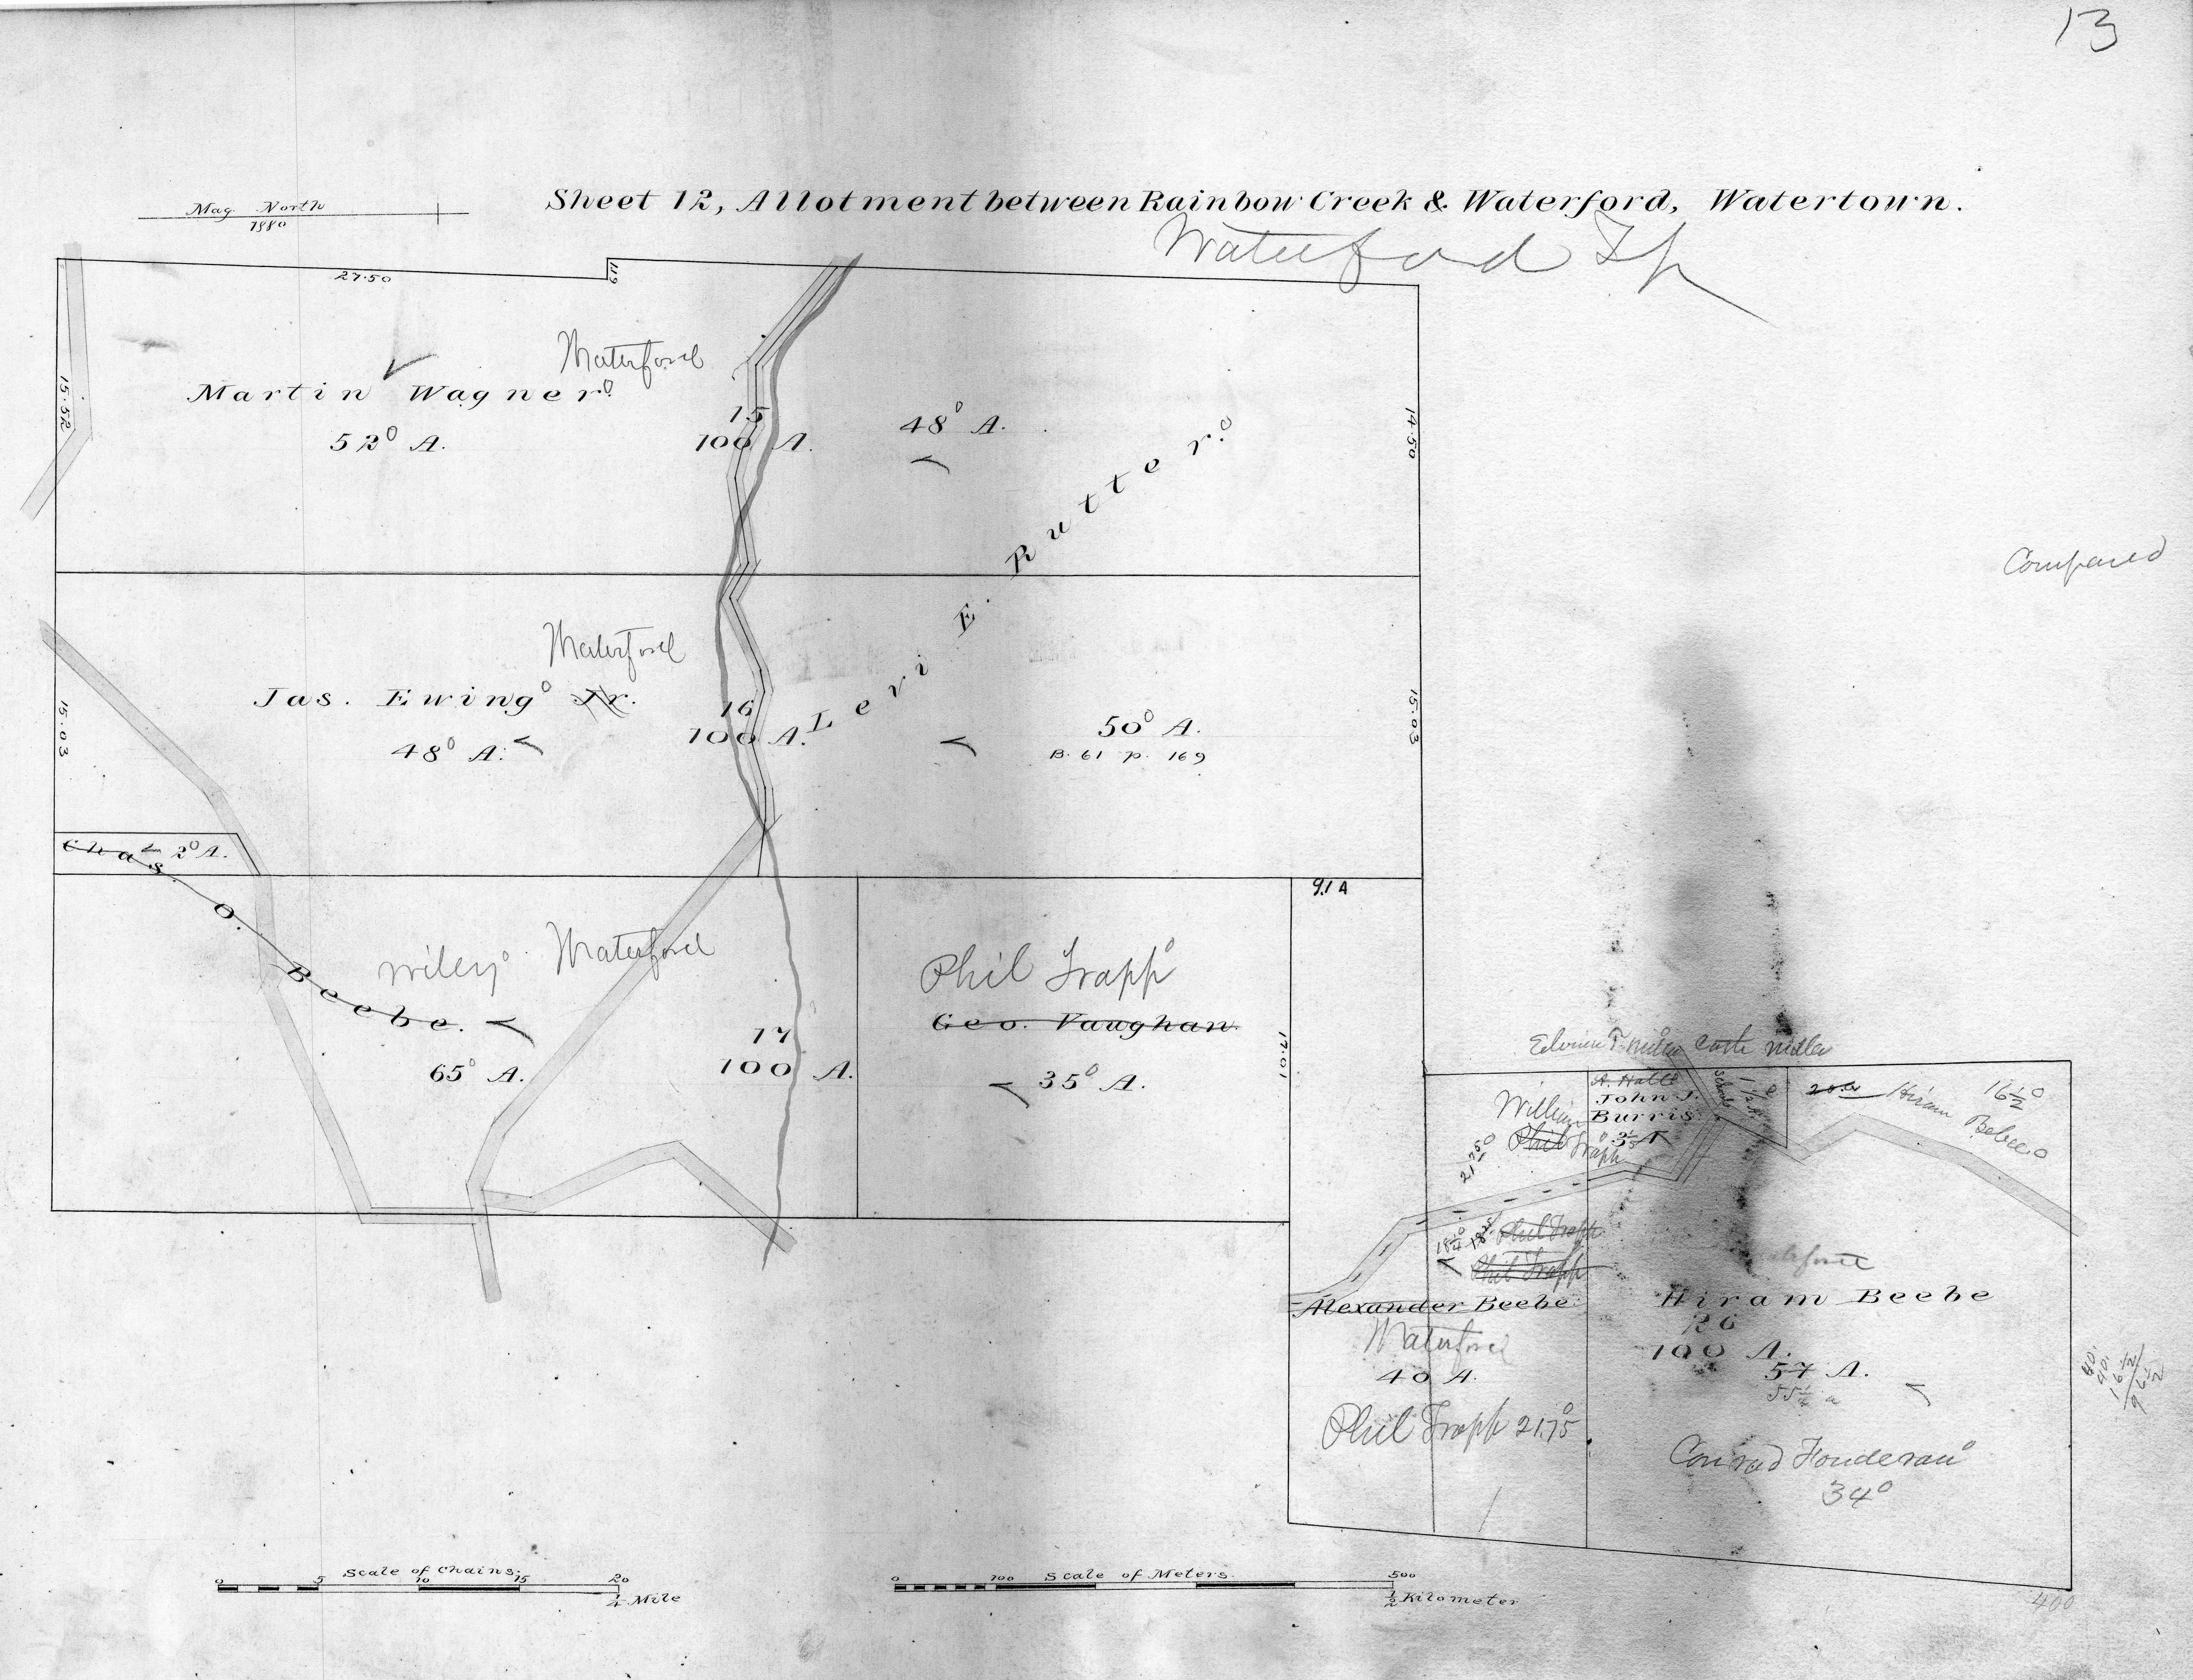 13
Sheet 12, Allotment between Rainbow Creek & Waterford, Watertown.
Mag North
1880
Waterford Tp
27.50
1.19
15.52
Waterford
Martin Wagner
52° A.
15
100 A.
48° A.
14.50
Levi E. Rutter
Compared
Waterford
Jas. Ewing Jr.
48° A.
16
100 A.
50° A.
B. 61 p. 169
15.03
15.03
Chas. O. Beebe.
2° A.
9.1 A
Wiley
Waterford
65° A.
17
100 A.
Phil Trapp
Geo. Vaughan
35° A.
17.01
Miller
A. Hall
John J.
Burris
School
1 1/2 A.
20 a
Hiram Bebee
16 1/2
William
Phil Trapp
21.75
18 1/4
Phil Trapp
Phil Trapp
Alexander Beebe
Waterford
40 A.
Phil Trapp 21.75
Hiram Beebe
26
100 A.
57 A.
55 1/2 a
40
40
16 1/2
96 1/2
Conrad Fonderau
34°
400
Scale of Chains
0 5 10 15 20
1/4 Mile
Scale of Meters
0 100 500
1/2 Kilometer